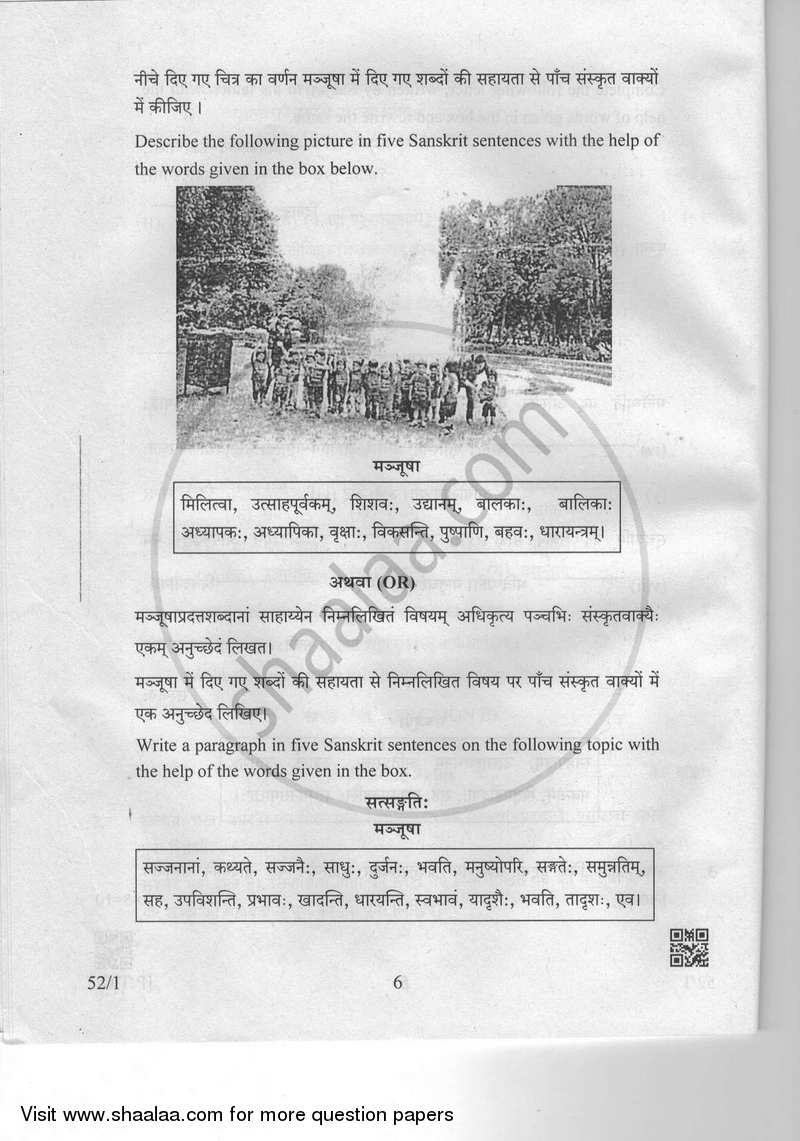 नीचे दिए गए चित्र का वर्णन मञ्जूषा में दिए गए शब्दों की सहायता से पाँच संस्कृत वाक्यों
में कीजिए ।
Describe the following picture in five Sanskrit sentences with the help of
the words given in the box below.
मञ्जूषा
मिलित्वा, उत्साहपूर्वकम्, शिशवः, उद्यानम्, बालकाः, बालिकाः
अध्यापकः, अध्यापिका, वृक्षाः, विकसन्ति, पुष्पाणि, बहवः, धारायन्त्रम्।
अथवा (OR)
मञ्जूषाप्रदत्तशब्दानां साहाय्येन निम्नलिखितं विषयम् अधिकृत्य पञ्चभिः संस्कृतवाक्यैः
एकम् अनुच्छेदं लिखत।
मञ्जूषा में दिए गए शब्दों की सहायता से निम्नलिखित विषय पर पाँच संस्कृत वाक्यों में
एक अनुच्छेद लिखिए।
Write a paragraph in five Sanskrit sentences on the following topic with
the help of the words given in the box.
सत्सङ्गतिः
मञ्जूषा
सज्जनानां, कथ्यते, सज्जनैः, साधुः, दुर्जनः, भवति, मनुष्योपरि, सङ्गतेः, समुन्नतिम्,
सह, उपविशन्ति, प्रभावः, खादन्ति, धारयन्ति, स्वभावं, यादृशैः, भवति, तादृशः, एव।
52/1
6
shaalaa.com
Visit www.shaalaa.com for more question papers